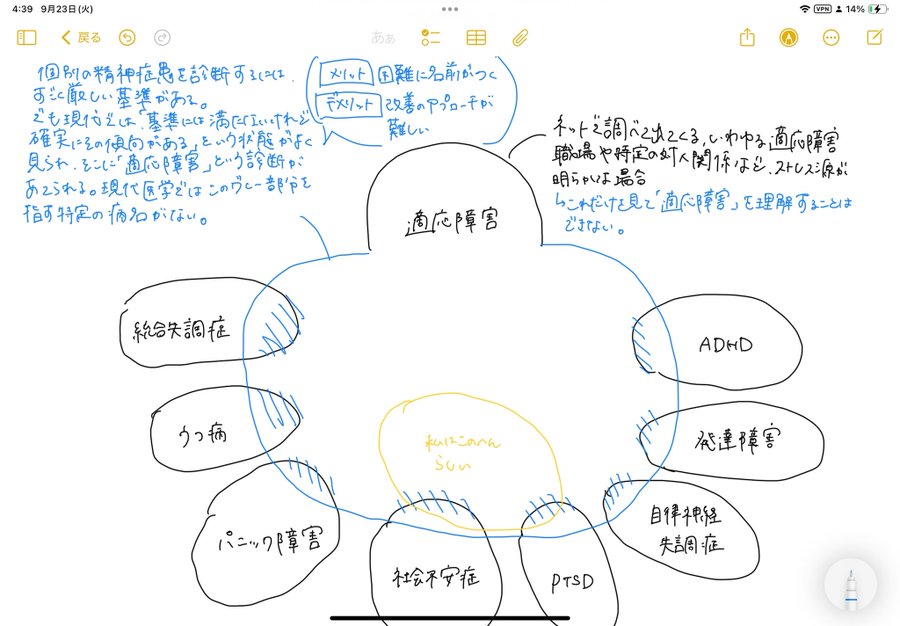 4:39 9月23日(火)
VPN 14%
戻る
あぁ
個別の精神症患を診断するには、
すごく厳しい基準がある。
でも現代では、「基準には満たないけれど
確実にその傾向がある」という状態がよく
見られ、そこに「適応障害」という診断が
あてられる。現代医学ではこのグレー部分を
指す特定の病名がない。
メリット 困難に名前がつく
デメリット 改善のアプローチが
難しい
ネットで調べて出てくる、いわゆる「適応障害」
職場や特定の対人関係など、ストレス源が
明らかな場合
↳これだけを見て「適応障害」を理解することは
できない。
適応障害
総合失調症
ADHD
うつ病
発達障害
私はこのへん
らしい
パニック障害
自律神経
失調症
社会不安症
PTSD